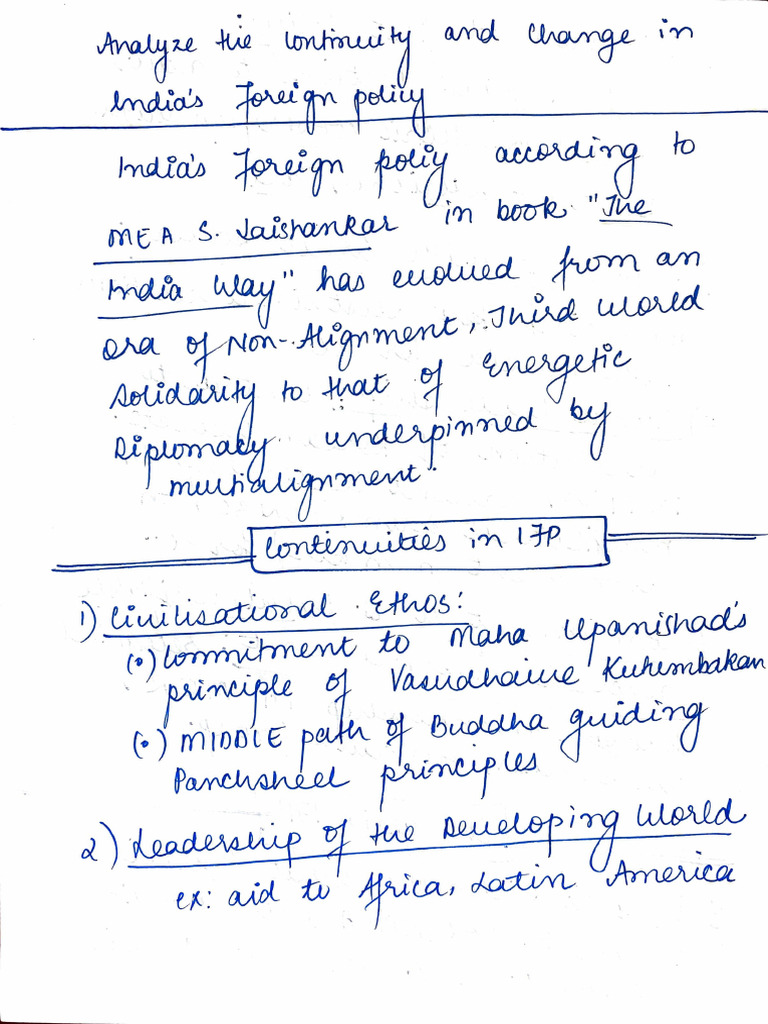 Analyze the continuity and change in
India's Foreign policy
India's Foreign poliy according to
MEA S. Jaishankar in book "The
India Way" has evolved from an
era of Non-Alignment, Third World
Solidarity to that of Energetic
Diplomacy underpinned by
multialignment.
Continuities in IFP
1) Civilisational Ethos:
(•) Commitment to Maha Upanishad's
principle of Vasudhaive Kutembakan
(•) MIDDLE path of Buddha guiding
Panchsheel principles
2) Leadership of the Developing World
ex: aid to Africa, Latin America